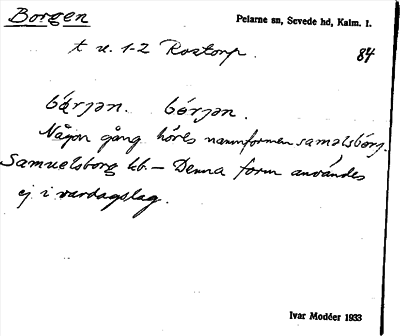 Borgen
Pelarne sn, Sevede hd, Kalm. l.
t u. 1-2 Rostorp.
84
bórjən. bórjən.
Någon gång höres namnformen saməlsbórj.
Samuelsborg kb. — Denna form användes
ej i vardagslag.
Ivar Modéer 1933